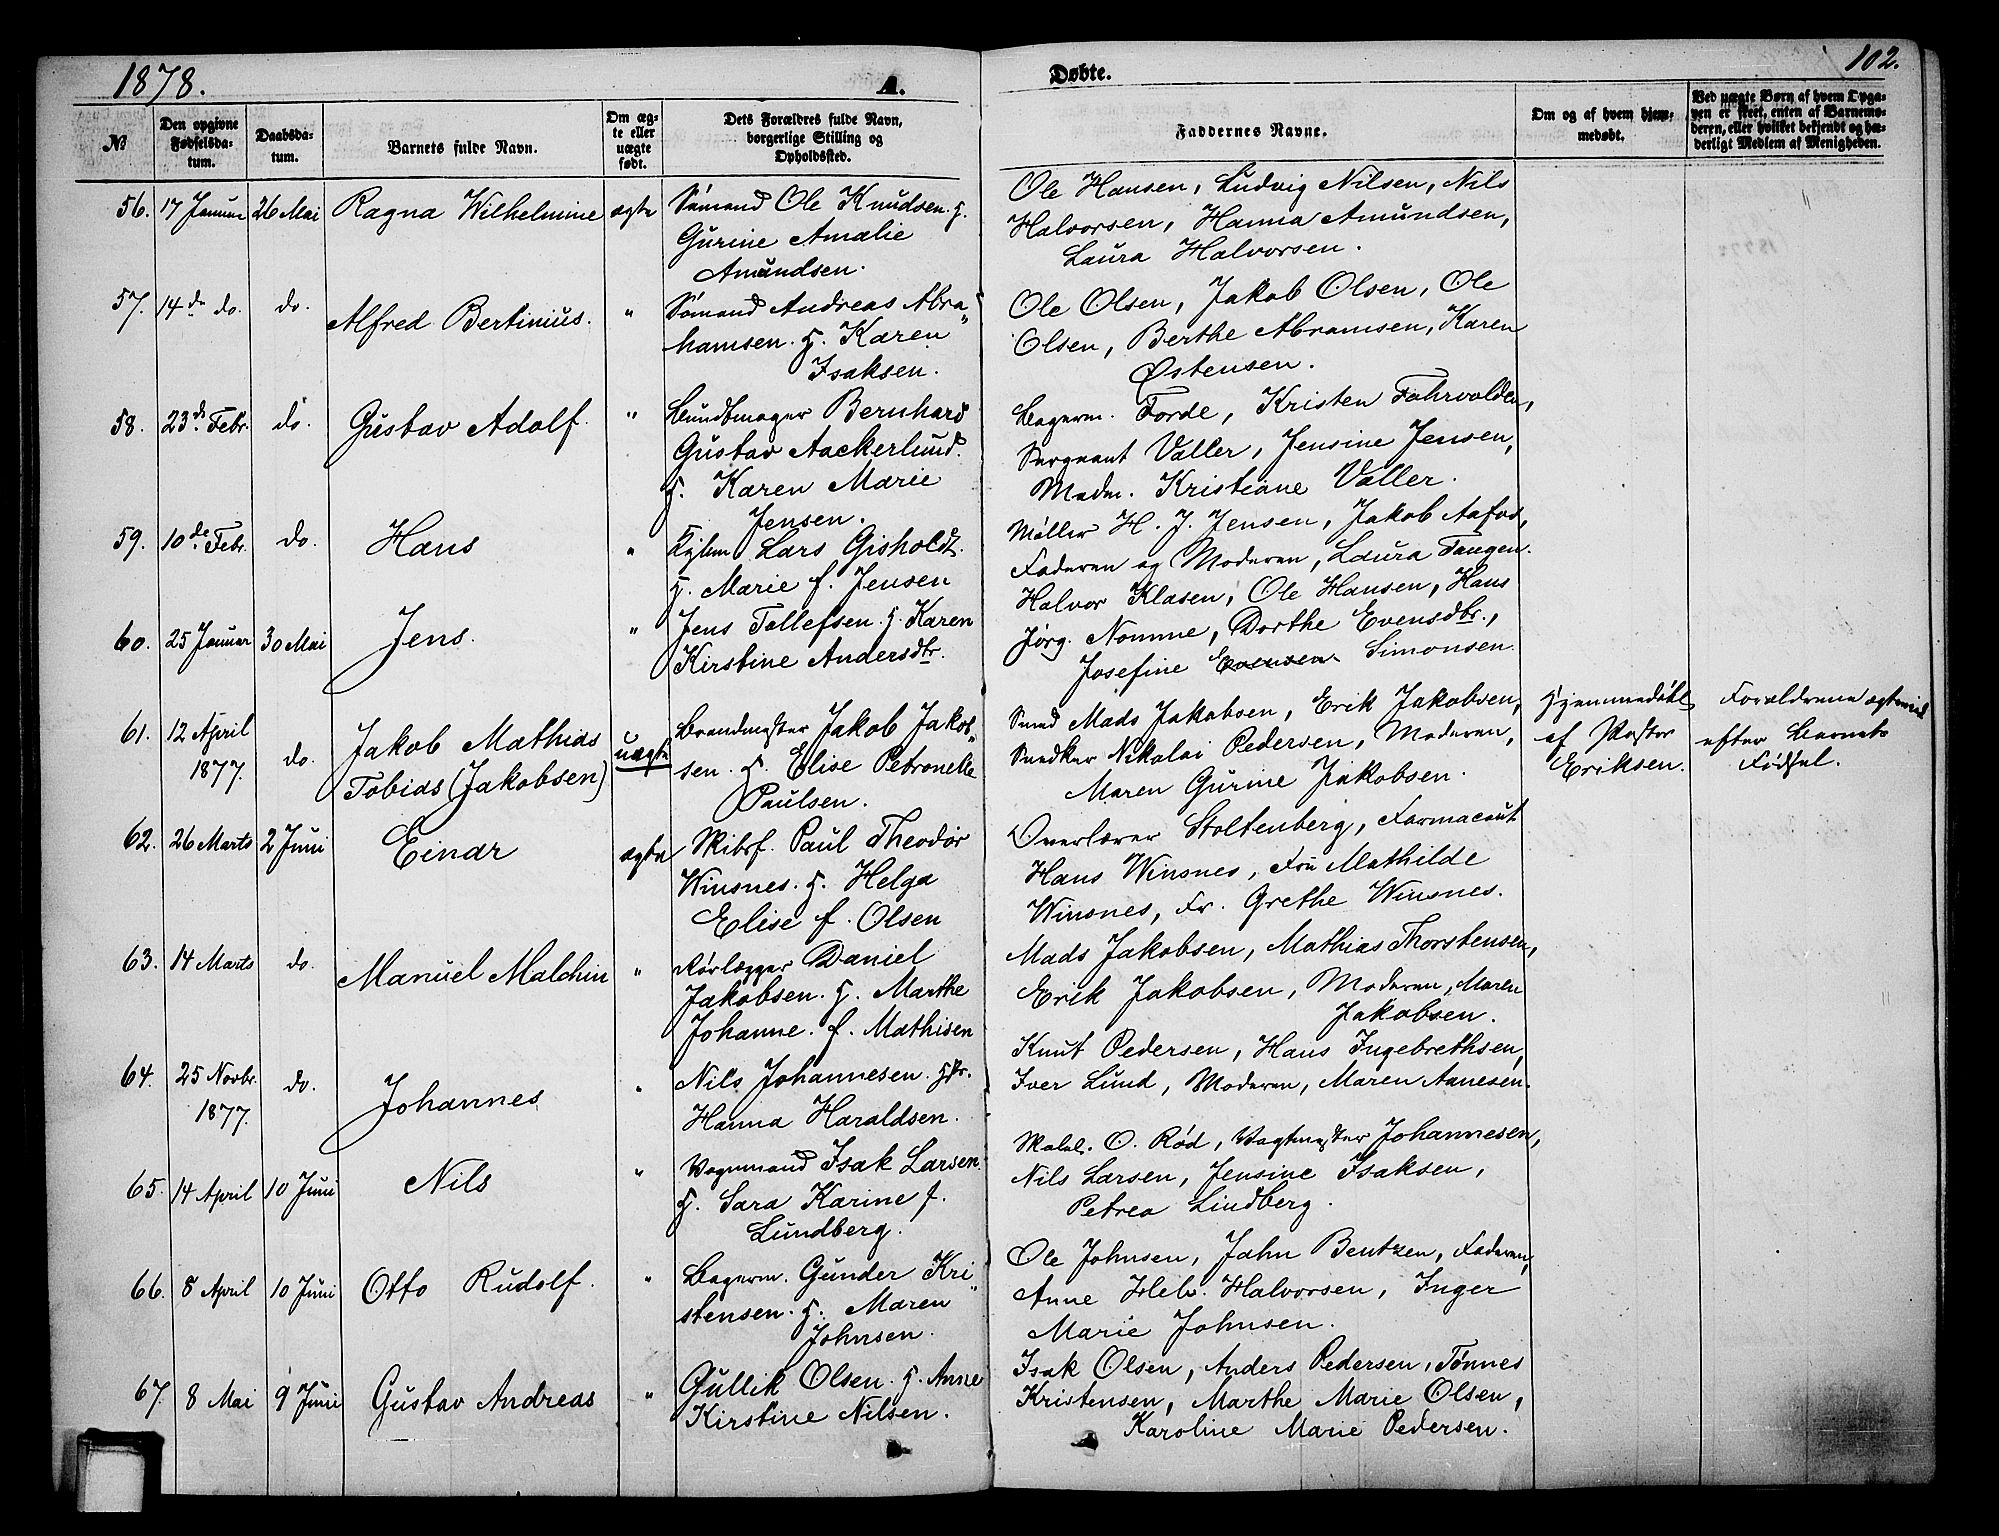 1878.
A.
Døbte.
102.
№
Den opgivne Fødselsdatum.
Daabsdatum.
Barnets fulde Navn.
Om ægte eller uægte født.
Dets Forældres fulde Navn, borgerlige Stilling og Opholdssted.
Faddernes Navne.
Om og af hvem hjemmedøbt.
Ved uægte Børn af hvem Opgaven er skeet, enten af Barnemoderen, eller hvilket bekjendt og hæderligt Medlem af Menigheden.
56. 17 Januar 26 Mai Ragna Wilhelmine ægte Sömand Ole Knudsen. H.
Gurine Amalie
Amundsen.
Ole Hansen, Ludvig Nilsen, Nils
Halvorsen, Hanna Amundsen,
Laura Halvorsen.
57. 14de do. do. Alfred Bertinius. " Sömand Andreas Abra„
hamsen. H. Karen
Isaksen.
Ole Olsen, Jakob Olsen, Ole
Olsen, Berthe Abramsen, Karen
Østensen.
58. 23de Febr. do. Gustav Adolf. " Bundtmager Bernhard
Gustav Aackerlund.
H. Karen Marie
Jensen.
Bagerm. Forde, Kristen Fahrvolden,
Sergeant Valler, Jensine Jensen,
Madm. Kristiane Valler.
59. 10de Febr. do. Hans " Lars Gisholdt.
H. Marie f. Jensen
Møller H. J. Jensen, Jakob Aafos,
Faderen og Moderen, Laura Tangen.
60. 25 Januar 30 Mai Jens. " Jens Tollefsen H. Karen
Kirstine Andersdtr.
Halvor Klasen, Ole Hansen, Hans
Jörg. Nomme, Dorthe Evensdtr.,
Josefine Evensen Simonsen.
61. 12 April
1877. do. Jakob Mathias
Tobias (Jakobsen) uægte Brandmester Jakob Jakob„
sen. H. Elise Petronelle
Paulsen.
Smed Mads Jakobsen, Erik Jakobsen,
Snedker Nikolai Pedersen, Moderen,
Maren Gurine Jakobsen.
Hjemmedöbt
af Pastor
Eriksen.
Forældrene ægteviet
efter Barnets
Fødsel.
62. 26 Marts 2 Juni Einar ægte Skibsf. Paul Theodor
Winsnes. H. Helga
Elise f. Olsen
Overlærer Stoltenberg, Farmaceut
Hans Winsnes, Fru Mathilde
Winsnes, Fr. Grethe Winsnes.
63. 14 Marts do. Manuel Malchin " Rörlægger Daniel
Jakobsen. H. Marthe
Johanne. f. Mathisen
Mads Jakobsen, Mathias Thorstensen,
Erik Jakobsen, Moderen, Maren
Jakobsen.
64. 25 Novbr.
1877. do. Johannes " Nils Johannesen. Hr.
Hanna Haraldsen.
Knut Pedersen, Hans Ingebrethsen,
Iver Lund, Moderen, Maren Aanesen.
65. 14 April 10 Juni Nils " Vognmand Isak Larsen.
H. Sara Karine f.
Lundberg.
O. Rød, Vagtmester Johannesen,
Nils Larsen, Jensine Isaksen,
Petrea Lindberg.
66. 8 April 10 Juni Otto Rudolf. " Bagerm. Gunder Kri„
stensen. H. Maren
Johnsen.
Ole Johnsen, Jahn Bentzen, Faderen,
Anne Hel. Halvorsen, Inger
Marie Johnsen.
67. 8 Mai 9 Juni Gustav Andreas " Gullik Olsen. H. Anne
Kirstine Nilsen.
Isak Olsen, Anders Pedersen, Tönnes
Kristensen, Marthe Marie Olsen,
Karoline Marie Pedersen.